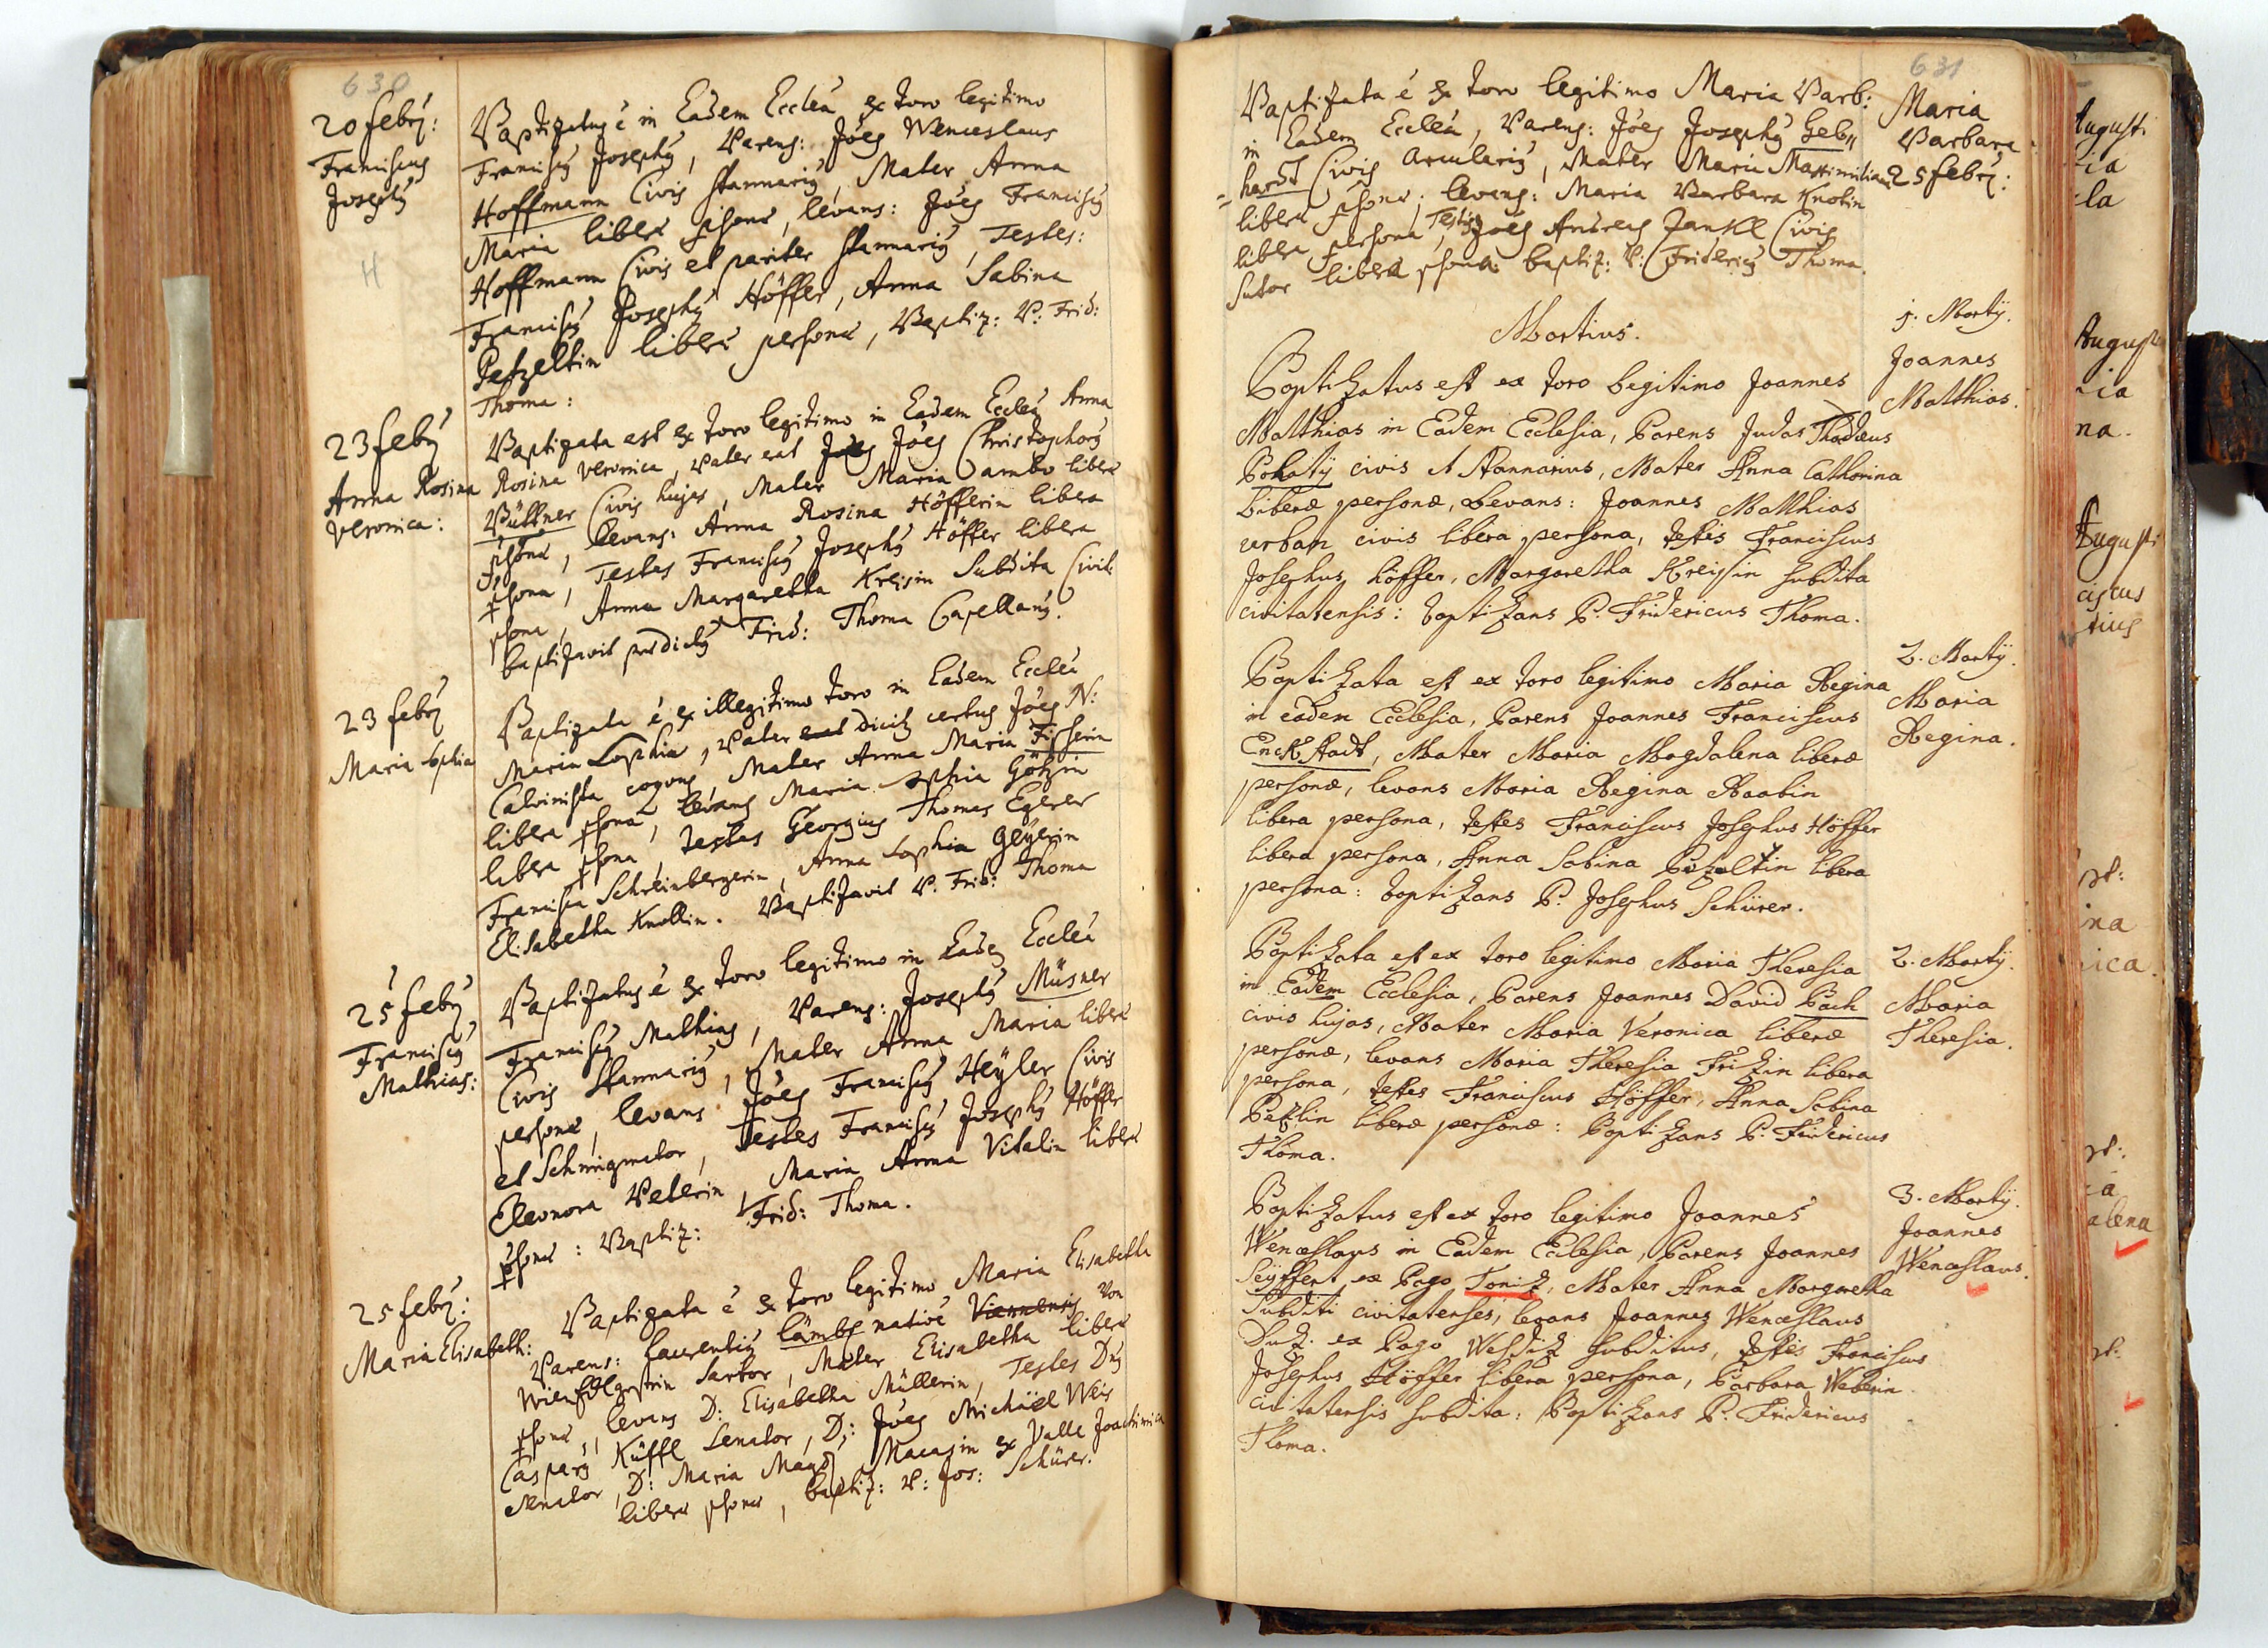 630
20 febrį:
Franciscus
Josephų
H
Baptizatus é in Eadem Eccleá ex toro legitimo
Franciscų Josephų, Parens: Jöes Wenceslaus
Hoffmann Civis stannarių, Mater Anna
Maria liberæ psonæ, levans: Jöes Franciscų
Hoffmann Civis et pariter stannarių, Testes:
Franciscų Josephų Höffer, Anna Sabina
Petzeltin liberæ personæ, Baptiz: P: Frid:
Thoma:
23 febrį
Anna Rosina
Veronica:
Baptizata est ex toro legitimo in Eadem Eccleá Anna
Rosina Veronica, Pater erat Jöes Jöes Christophorų
Büttner Civis hujas, Mater Maria ambo liberæ
psonæ, levans: Anna Rosina Höfferin libera
psona, Testes Franciscų Josephų Höffer libera
psona, Anna Margaretha Kreisin Subdita Civit:
baptizavit prædictų Frid: Thoma Capellanų.
23 febrį
Maria Sophia
Baptizata é ex illegitimo toro in Eadem Eccleá
Maria Sophia, Pater erat dicitų certus Jöes N:
Calvinista coquus, Mater Anna Maria Fisserin
libera psona, levans Maria Sophia Götzin
libera psona, Testes Georgius Thomas Egerer
Francisca Schreinbergerin, Anna Sophia Geÿerin
Elisabetha Knollin. Baptizavit P. Frid: Thoma
25 febrį
Franciscų
Mathias:
Baptizatus é ex toro legitimo in Eadem Eccleá
Franciscų Mathias, Parens: Josephų Müsner
Civis stannarių, Mater Anna Maria liberæ
personæ, levans Jöes Franciscų Heÿler Civis
et Schmigmator, Testes Franciscų Josephų Höffer
Eleonora Peterin, Maria Anna Vitalin liberæ
psonæ: Baptiz: Frid: Thoma.
25 febrį:
Maria Elisabeth:
Baptizata é ex toro legitimo Maria Elisabetha
Parens: Laurentių Lämbs nativé Viennensis von
Wien Sartor, Mater Elisabetha liberæ
psonæ, levans D: Elisabetha Müllerin, Testes Dņs
Casparų Küffl Senator, D: Jöes Michäel Weis
Senator, D: Maria Magd: Macasin ex Valle Joachimica
liberæ psonæ, baptiz: P: Jos: Schürer.
631
Baptizata é ex toro legitimo Maria Barb:
in Eadem Eccleá, Parens: Jöes Josephų Geb=
=hardt Civis arcularių, Mater Maria Maximiliana
liberæ psonæ, levans: Maria Barbara Knolin
libera persona, Testis Jöes Andreas Jankl Civis
sutor libera psona. baptiz: P: Fridericų Thoma.
Maria
Barbara
25 febrį:
Martius.
Baptizatus est ex toro legitimo Joannes
Matthias in Eadem Ecclesia, Parens Judas Thadæus
Pokatÿ civis et stannarius, Mater Anna Catharina
liberæ personæ, Levans: Joannes Matthias
urban civis libera persona, testis Franciscus
Josephus höffer, Margaretha Kreissin subdita
civitatensis: baptizans P. Fridericus Thoma.
1. Martÿ.
Joannes
Matthias.
Baptizata est ex toro legitimo Maria Regina
in eadem Ecclesia, Parens Joannes Franciscus
Enckstadt, Mater Maria Magdalena liberæ
personæ, levans Maria Regina Raabin
libera persona, testes Franciscus Josephus Höffer
libera persona, Anna Sabina Pezeltin libera
persona: baptizans P. Josephus Schürer.
2. Martÿ.
Maria
Regina.
Baptizata est ex toro legitimo Maria Theresia
in Eadem Ecclesia, Parens Joannes David Pach
civis hujas, Mater Maria Veronica liberæ
personæ, levans Maria Theresia Frizin libera
persona, testes Franciscus Höffer, Anna Sabina
Pezlin liberæ personæ: Baptizans P. Fridericus
Thoma.
2. Martÿ.
Maria
Theresia.
Baptizatus est ex toro legitimo Joannes
Wenceslaus in Eadem Ecclesia, Parens Joannes
Seÿffert ex Pago Toniz, Mater Anna Margaretha
subditi civitatenses, levans Joannes Wenceslaus
Duz. ex Pago Wesdiz subditus, testes Franciscus
Josephus Höffer libera persona, Barbara Weberin
civitatensis subdita: Baptizans P. Fridericus
Thoma.
3. Martÿ.
Joannes
Wenceslaus.